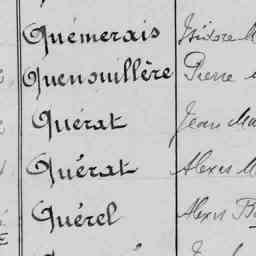 Quémerais Isidore
Quenouillère Pierre
Quérat Jean
Quérat Alexis
Quérel Alexis